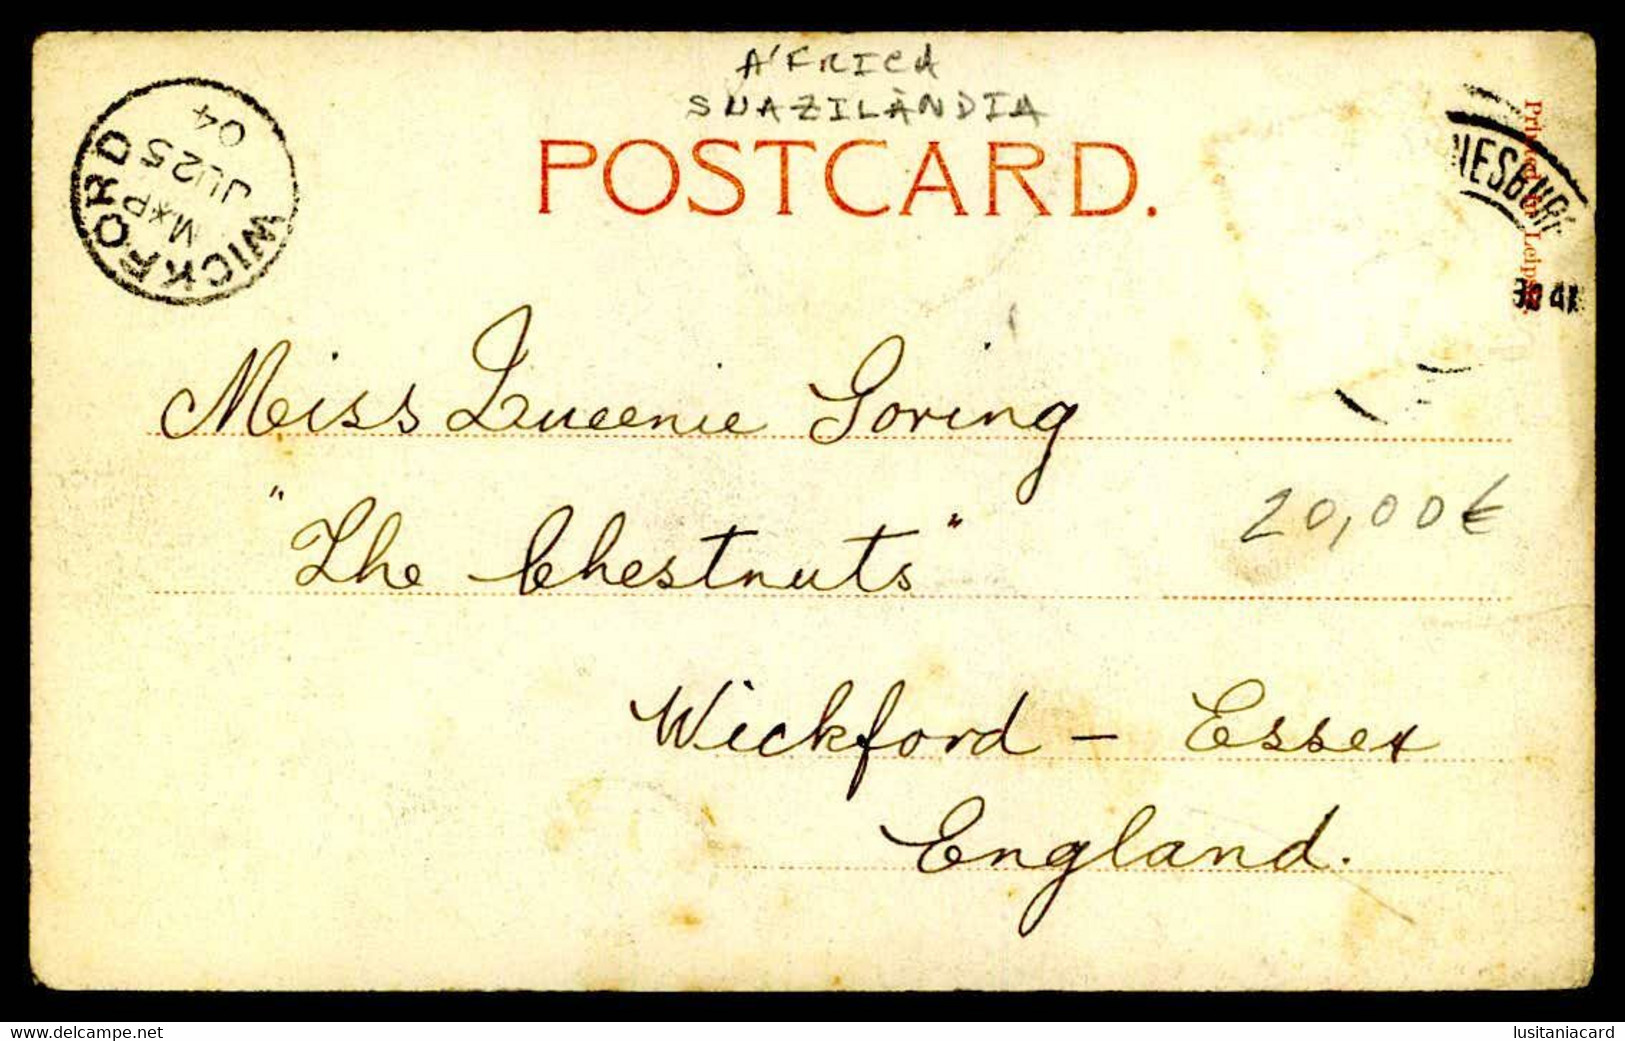 AFRICA
SUAZILÂNDIA
POSTCARD.
WICKFORD
M*P
JU 25
04
NESBUR
Printed in Leipsic.
Miss Queenie Goring
"The Chestnuts"
20,00€
Wickford - Essex
England.
www.delcampe.net
lusitaniacard